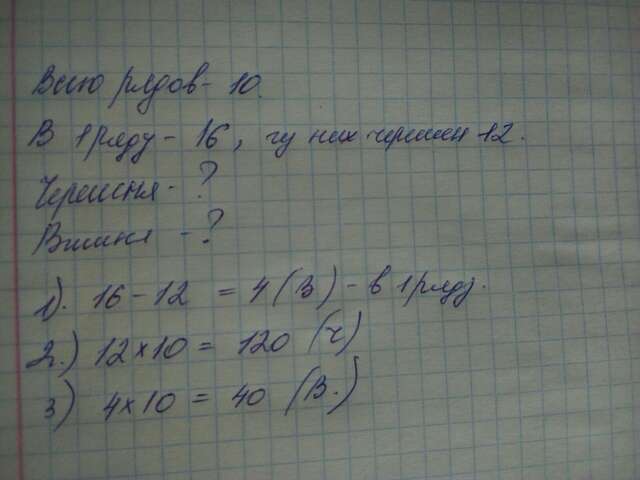 Всего рядов - 10.
В 1 ряду - 16, из них черешен 12.
Черешня - ?
Вишня - ?
1). 16 - 12 = 4 (В) - в 1 ряду.
2.) 12 x 10 = 120 (ч)
3) 4 x 10 = 40 (В.)